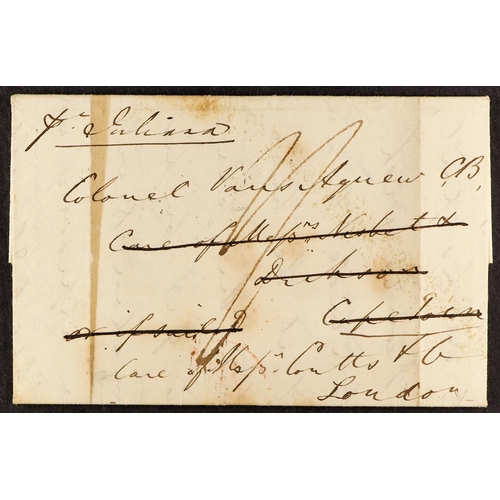 pr Juliana
Colonel Vans Agnew CB,
Care of Messrs Nisbet &
Dickson
Cape Town
or if sailed
Care of Messrs. Coutts & Co
London